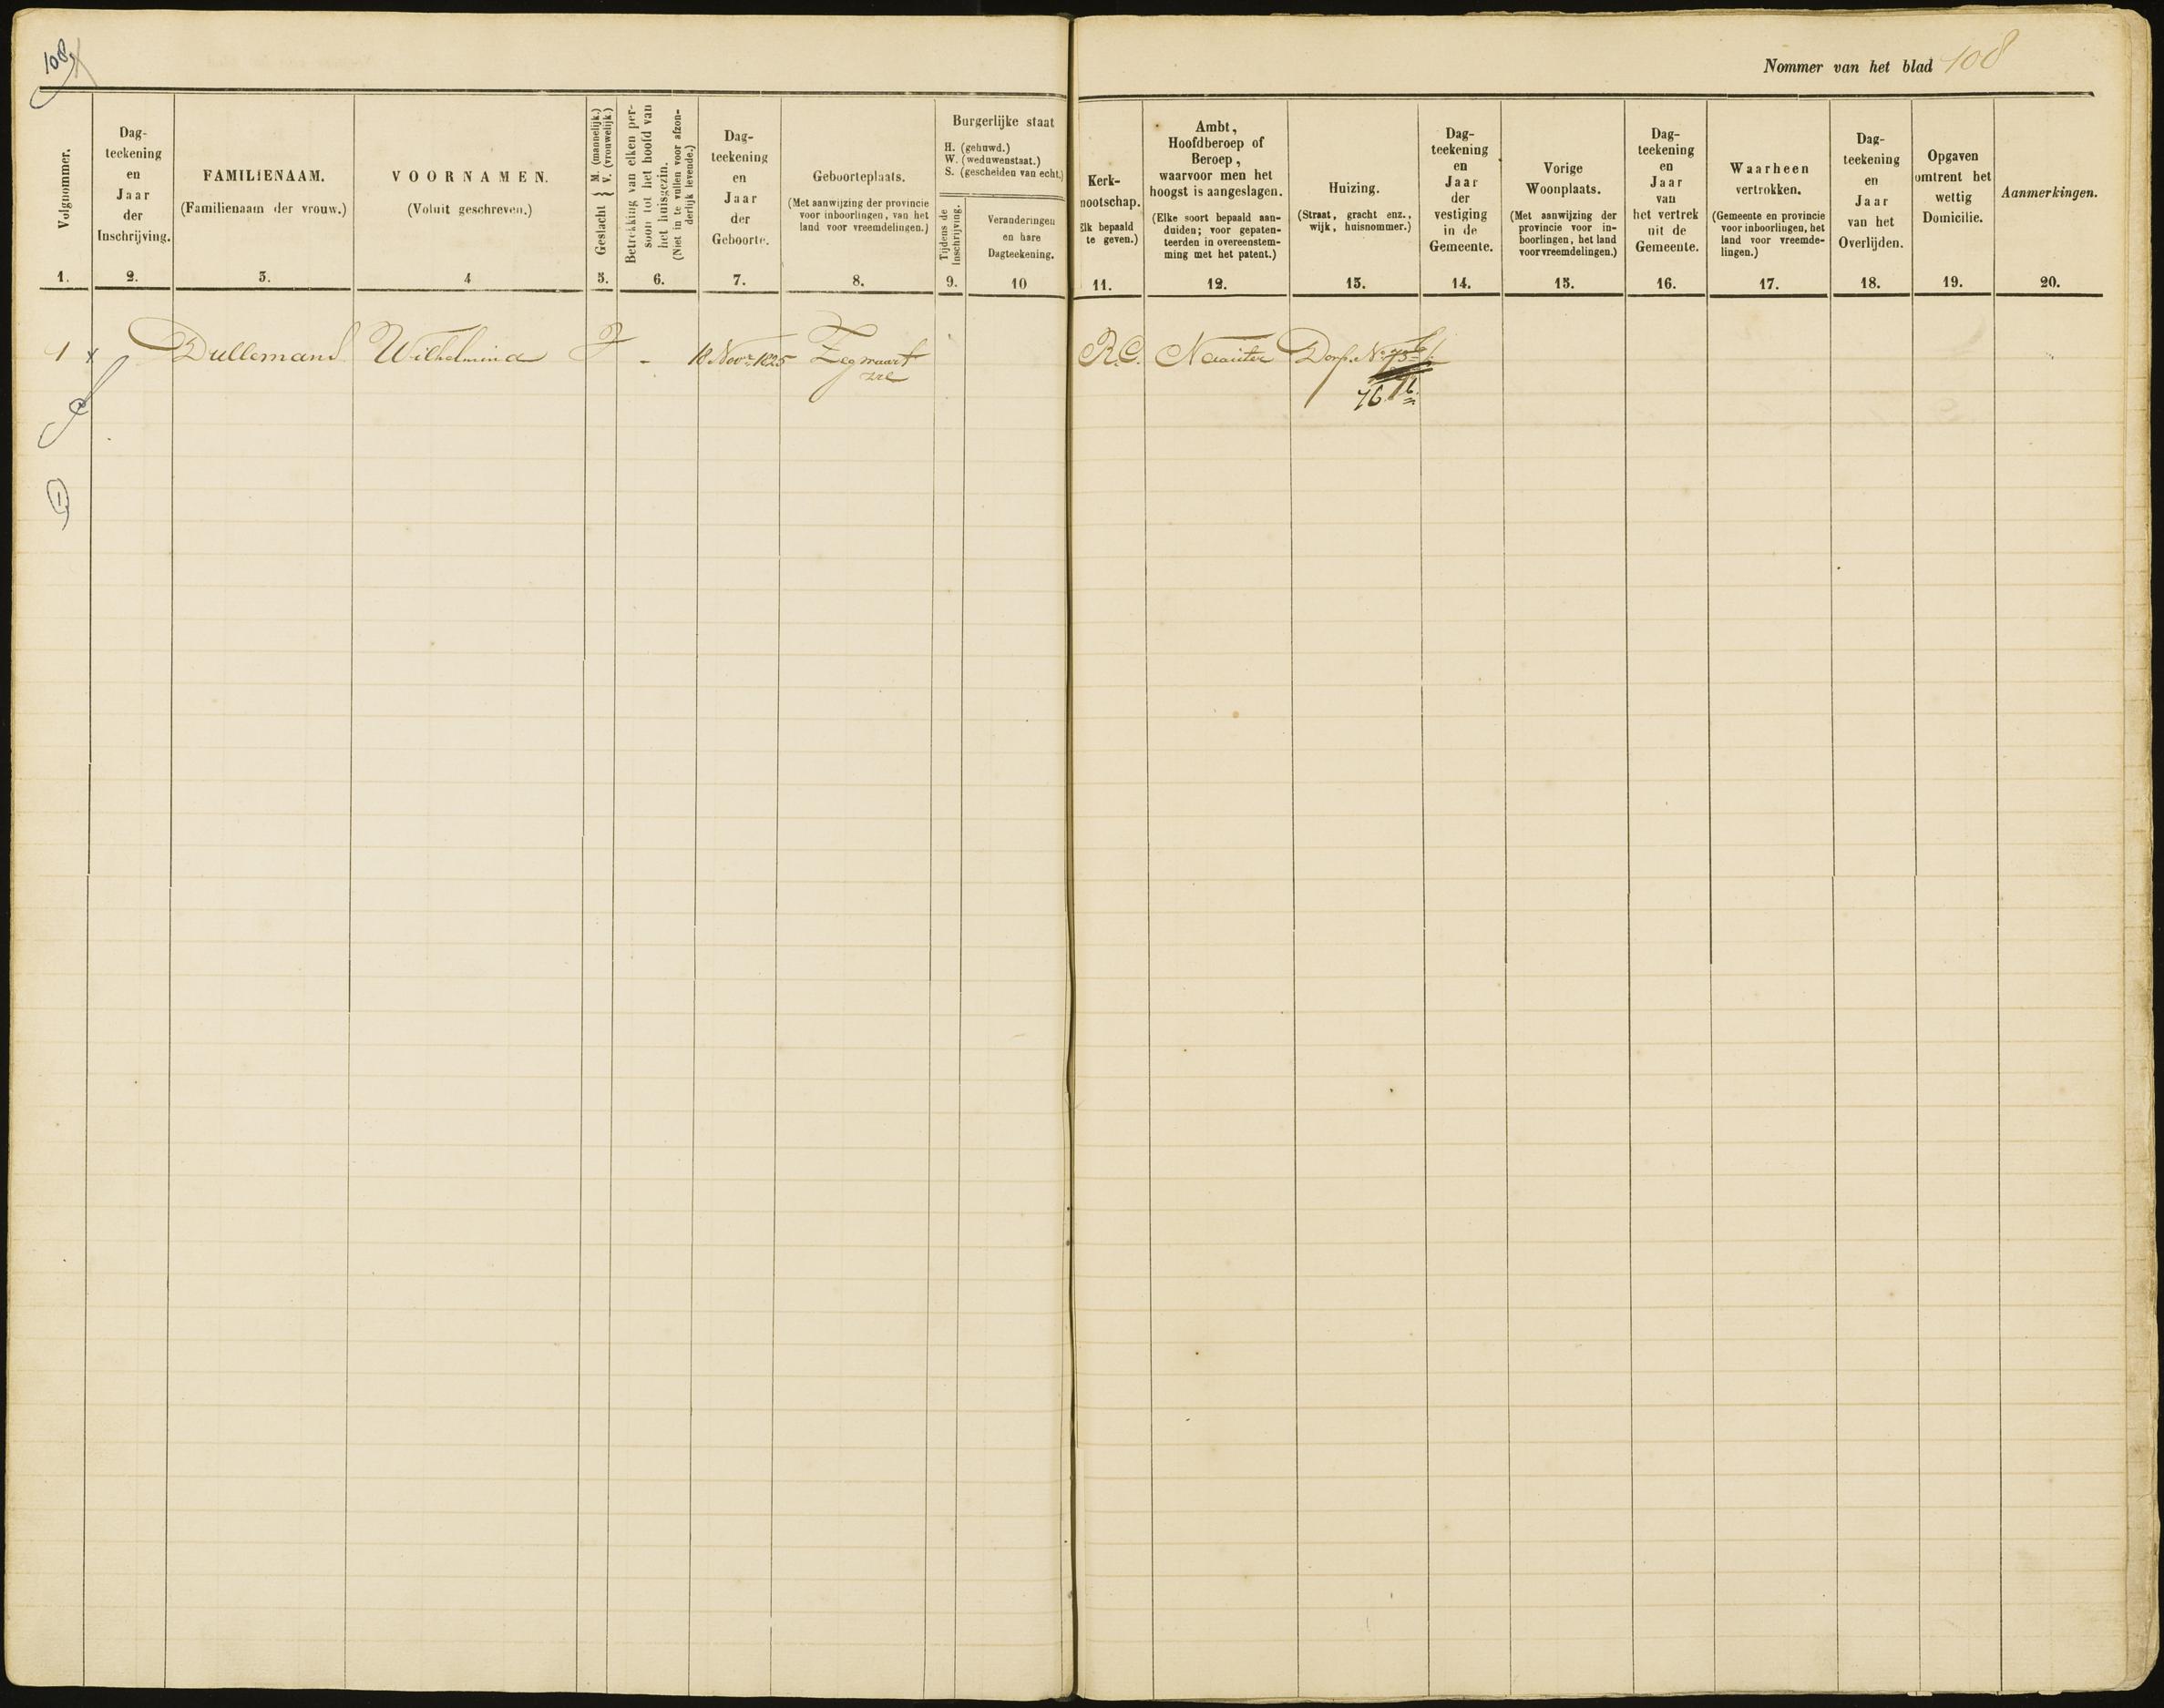 108
Nommer van het blad 108
Volgnommer.
1.
Dag-
teekening
en
Jaar
der
Inschrijving.
2.
FAMILIENAAM.
(Familienaam der vrouw.)
3.
VOORNAMEN.
(Voluit geschreven.)
4
Geslacht } M. (mannelijk.)
V. (vrouwelijk.)
5.
Betrekking van elken per-
soon tot het hoofd van
het huisgezin.
(Niet in te vullen voor afzon-
derlijk levende.)
6.
Dag-
teekening
en
Jaar
der
Geboorte.
7.
Geboorteplaats.
(Met aanwijzing der provincie
voor inboorlingen, van het
land voor vreemdelingen.)
8.
Burgerlijke staat
H. (gehuwd.)
W. (weduwenstaat.)
S. (gescheiden van echt.)
Tijdens de
Inschrijving.
9.
Veranderingen
en hare
Dagteekening.
10
Kerk-
nootschap.
Elk bepaald
te geven.)
11.
Ambt,
Hoofdberoep of
Beroep,
waarvoor men het
hoogst is aangeslagen.
(Elke soort bepaald aan-
duiden; voor gepaten-
teerden in overeenstem-
ming met het patent.)
12.
Huizing.
(Straat, gracht enz.,
wijk, huisnommer.)
13.
Dag-
teekening
en
Jaar
der
vestiging
in de
Gemeente.
14.
Vorige
Woonplaats.
(Met aanwijzing der
provincie voor in-
boorlingen, het land
voor vreemdelingen.)
15.
Dag-
teekening
en
Jaar
van
het vertrek
uit de
Gemeente.
16.
Waarheen
vertrokken.
(Gemeente en provincie
voor inboorlingen, het
land voor vreemde-
lingen.)
17.
Dag-
teekening
en
Jaar
van het
Overlijden.
18.
Opgaven
omtrent het
wettig
Domicilie.
19.
Aanmerkingen.
20.
1 x Dullemand Wilhelmina - 18 Novr. 1825 Zegwaart R.C. Naaister Dorp. No. 75
76